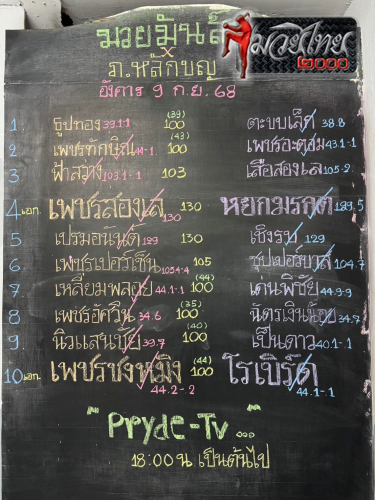 มวยมันส์
มวยไทย
๒๐๐๐
x
ภ.หลักบุญ
อังคาร 9 ก.ย. 68
1. ธูปทอง 39.1-1 (39) 100 ตะบบเล็ก 38.8
2. เพชรทักษิณ 44-1 (43) 100 เพชรอะตอม 43.1-1
3. ฟ้าสว่าง 103.1-1 103 เสือสองเล 105-2
4.เอก เพชรสองเล 130 130 หยกมรกต
5. เปรมอนันต์ 129 130 เชิงรบ 129
6. เพชรเปอร์เซ็น 105.4-4 105 ซุปเปอร์บาส 104.7
7. เหลี่ยมพลอย 44.1-1 (44) 100 เดนพิชัย 44.9-9
8. เพชรอควิน 34.6 (35) 100 ฉัตรเงินน้อย 34.7
9. นิวแสนชัย 39.7 (40) 100 เป็นดาว 40.1-1
10.เอก เพชรชงหมิง 44.2-2 (44) 100 โรเบิร์ต 44.1-1
"Pryde-Tv...
18:00 น เป็นต้นไป